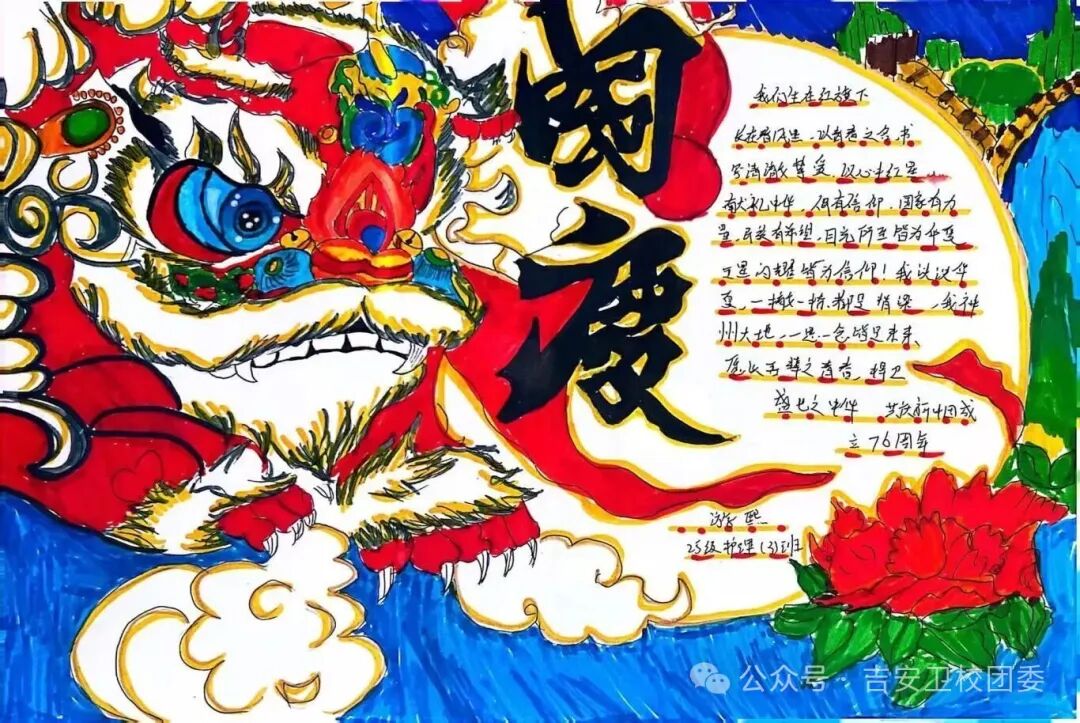 国庆
我们生在红旗下
长在春风里，以青春之名书
写清澈挚爱，以心中红星
献礼中华，何有信仰，国家有力
量，民族有希望，目光所至皆为华夏
五星闪耀皆为信仰！我泱泱华
夏，一撇一捺都是脊梁，我神
州大地，一思一念皆是未来、
愿以吾辈之青春，捍卫
盛世之中华 共庆新中国成
立76周年
游熙
25级护理（3）班
公众号·吉安卫校团委